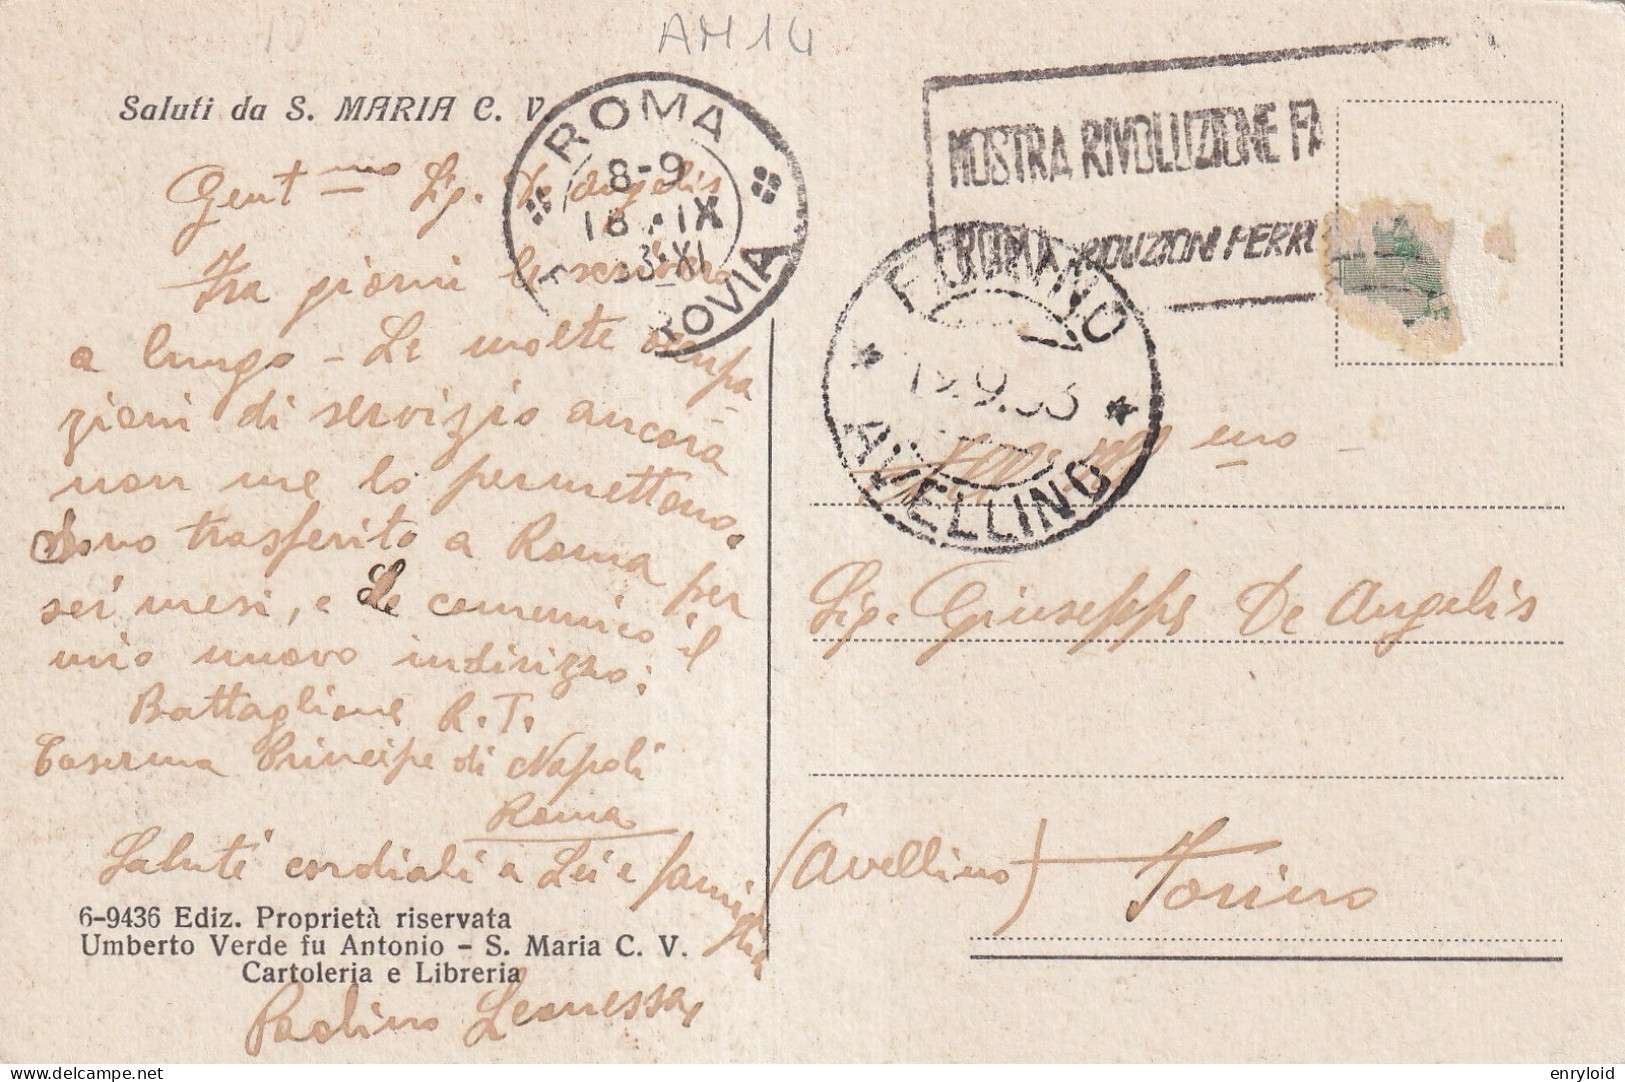 AM 14
Saluti da S. MARIA C. V.
Gent mo Sig. De Angelis
Fra giorni Le scriverò
a lungo - Le molte occupa-
zioni di servizio ancora
non me lo permettono.
Sono trasferito a Roma per
sei mesi, e Le comunico il
mio nuovo indirizzo:
Battaglione R. T.
Caserma Principe di Napoli
Roma
Saluti cordiali a Lei e famiglia
6-9436 Ediz. Proprietà riservata
Umberto Verde fu Antonio - S. Maria C. V.
Cartoleria e Libreria
Paolino
ROMA
8-9
18 · IX
33·XI
OVIA
MOSTRA RIVOLUZIONE FA
ROMA RIDUZIONI FERR
19.9.33
AVELLINO
mo
Sig. Giuseppe De Angelis
(Avellino) Torino
Delcampe.net
enryloid